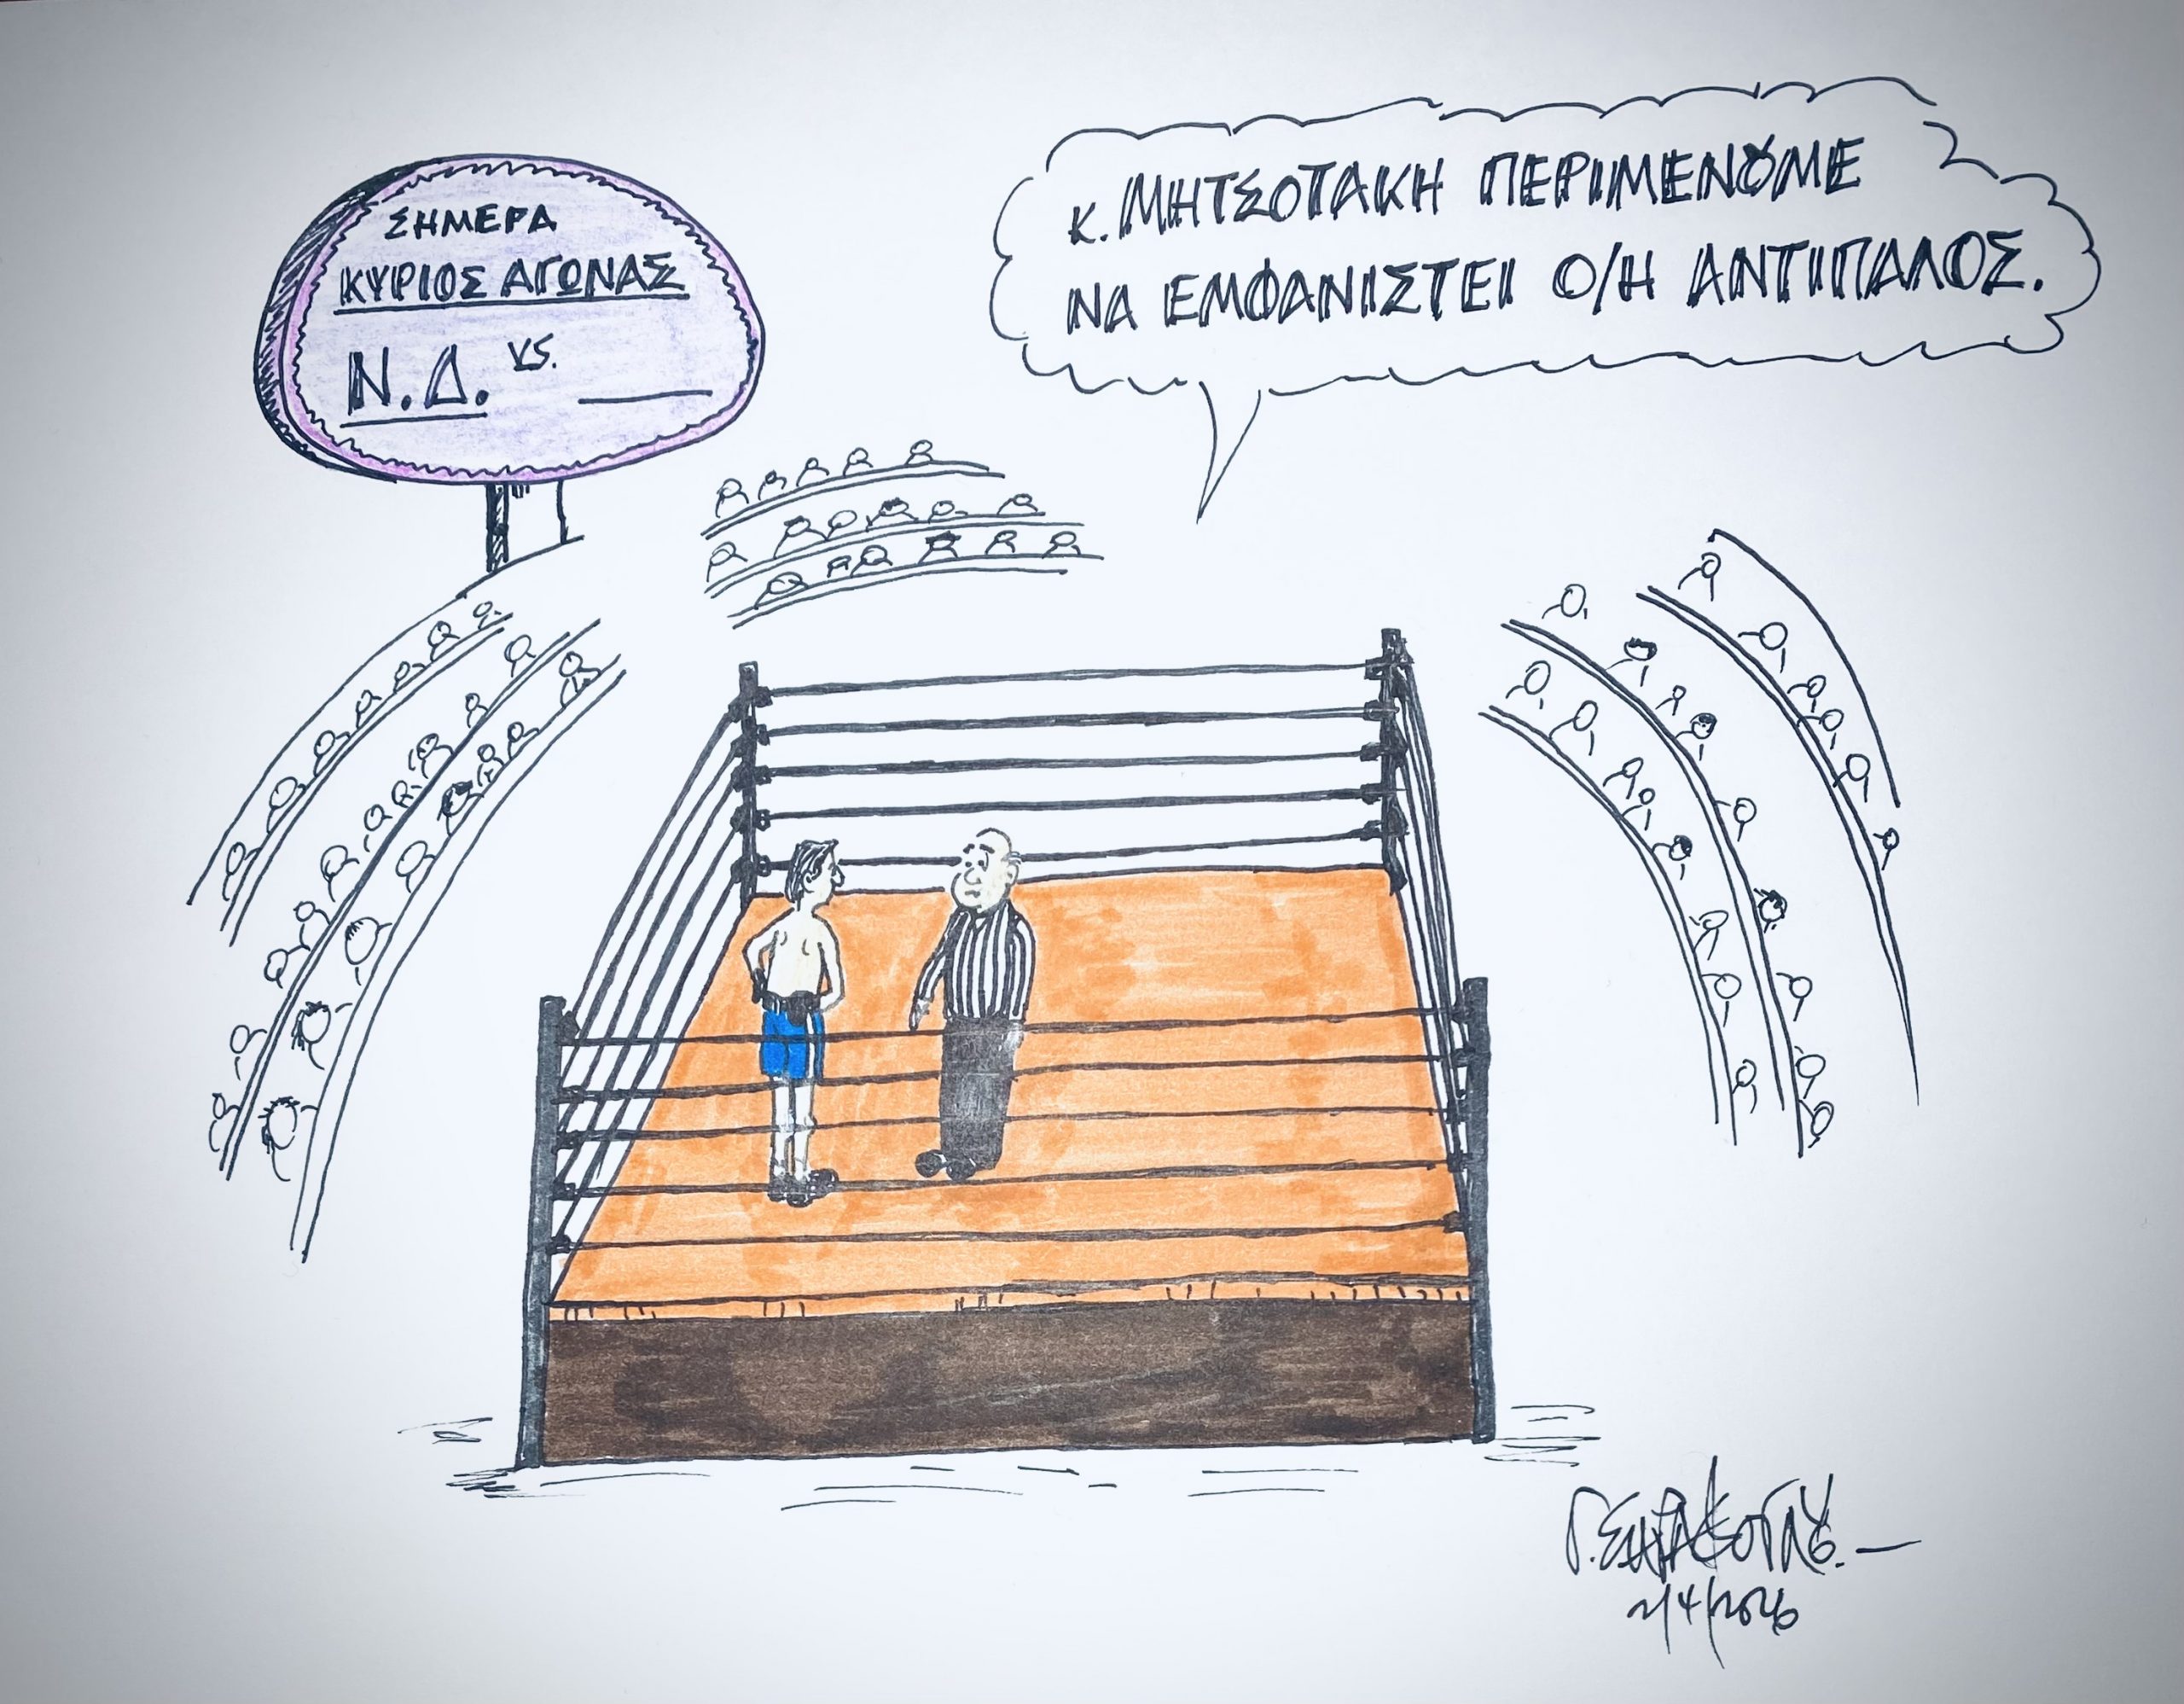 ΣΗΜΕΡΑ
ΚΥΡΙΟΣ ΑΓΩΝΑΣ
Ν.Δ. vs. ____
κ. ΜΗΤΣΟΤΑΚΗ ΠΕΡΙΜΕΝȢΜΕ
ΝΑ ΕΜΦΑΝΙΣΤΕΙ Ο/Η ΑΝΤΙΠΑΛΟΣ.
2/4/2026